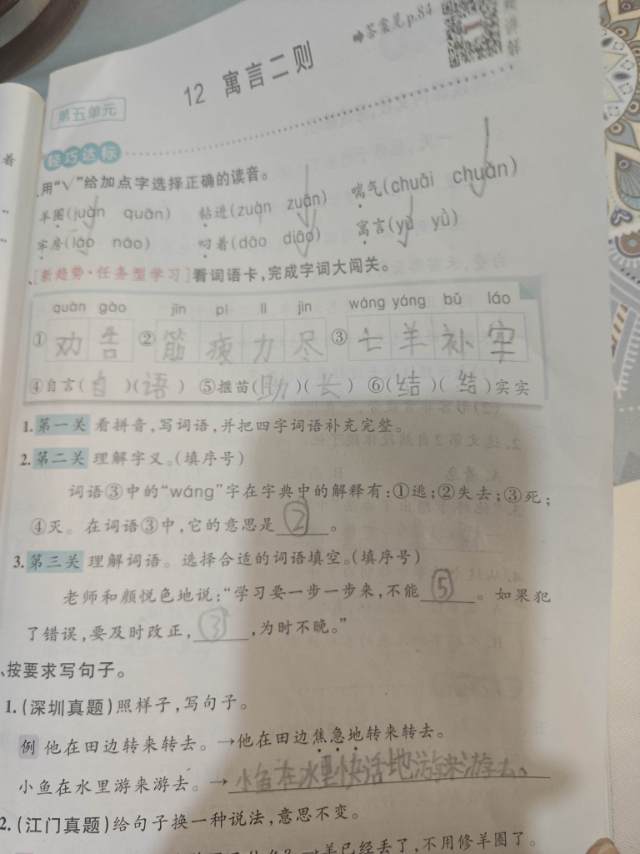 ➡答案见p.84
12 寓言二则
第五单元
轻巧达标
着
用“√”给加点字选择正确的读音。
羊圈(juàn quān) 钻进(zuān zuàn) 喘气(chuǎi chuǎn)
牢房(láo náo) 叼着(dāo diāo) 寓言(yù yǔ)
[新趋势·任务型学习]看词语卡,完成字词大闯关。
quàn gào jīn pí lì jìn wáng yáng bǔ láo
①劝告 ②筋疲力尽 ③亡羊补牢
④自言(自)(语) ⑤揠苗(助)(长) ⑥(结)(结)实实
1.第一关 看拼音,写词语,并把四字词语补充完整。
2.第二关 理解字义。(填序号)
词语③中的“wáng”字在字典中的解释有:①逃;②失去;③死;
④灭。在词语③中,它的意思是②。
3.第三关 理解词语。选择合适的词语填空。(填序号)
老师和颜悦色地说:“学习要一步一步来,不能⑤。如果犯
了错误,要及时改正,③,为时不晚。”
、按要求写句子。
1.(深圳真题)照样子,写句子。
例 他在田边转来转去。→他在田边焦急地转来转去。
小鱼在水里游来游去。→小鱼在水里快活地游来游去。
2.(江门真题)给句子换一种说法,意思不变。
羊已经丢了,不用修羊圈了。